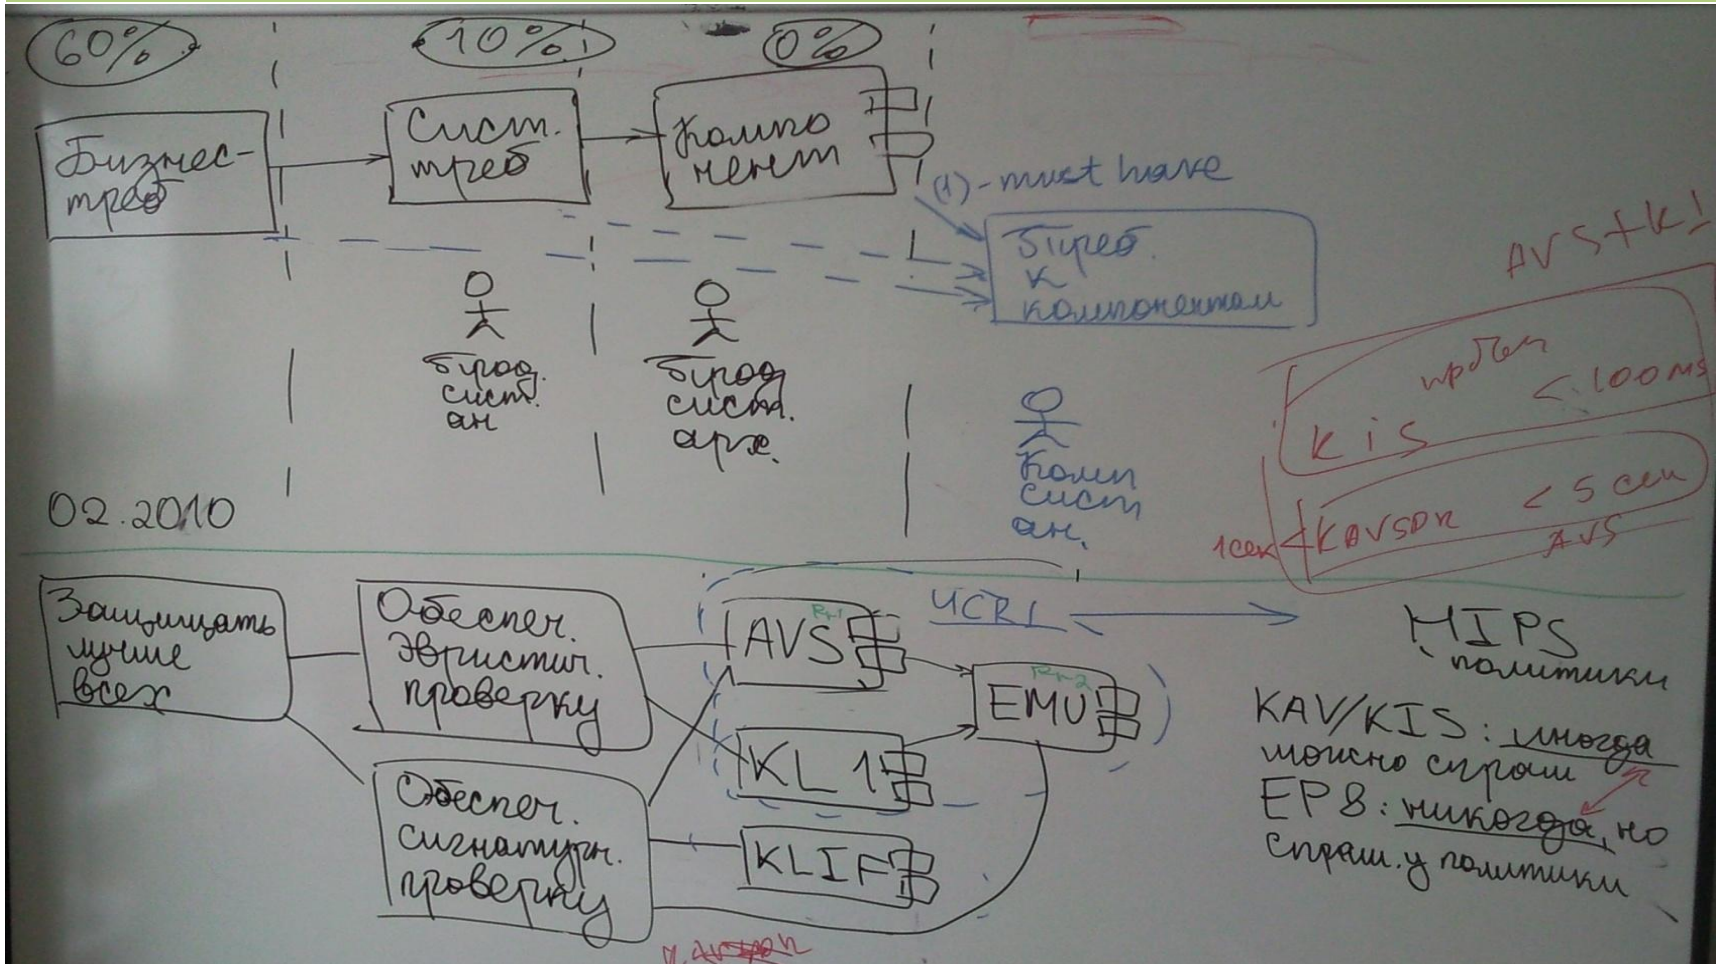 60%
10%
0%
Бизнес-
треб
Сист.
треб
Компо
нент
(1) - must have
Треб.
к
компонентам
AVS + K1
Прод.
сист.
ан
Прод
сист.
арх.
Комп
сист
ан.
< 100 ms
KiS
< 5 сек
AVS
1сек
02.2010
Защищать
лучше
всех
Обеспеч.
эвристич.
проверку
Обеспеч.
сигнатурн.
проверку
AVS
KL1
KLIF
EMU
UCR1
HIPS
политики
KAV/KIS: иногда
можно спраш
EP8: никогда, но
спраш. у политики